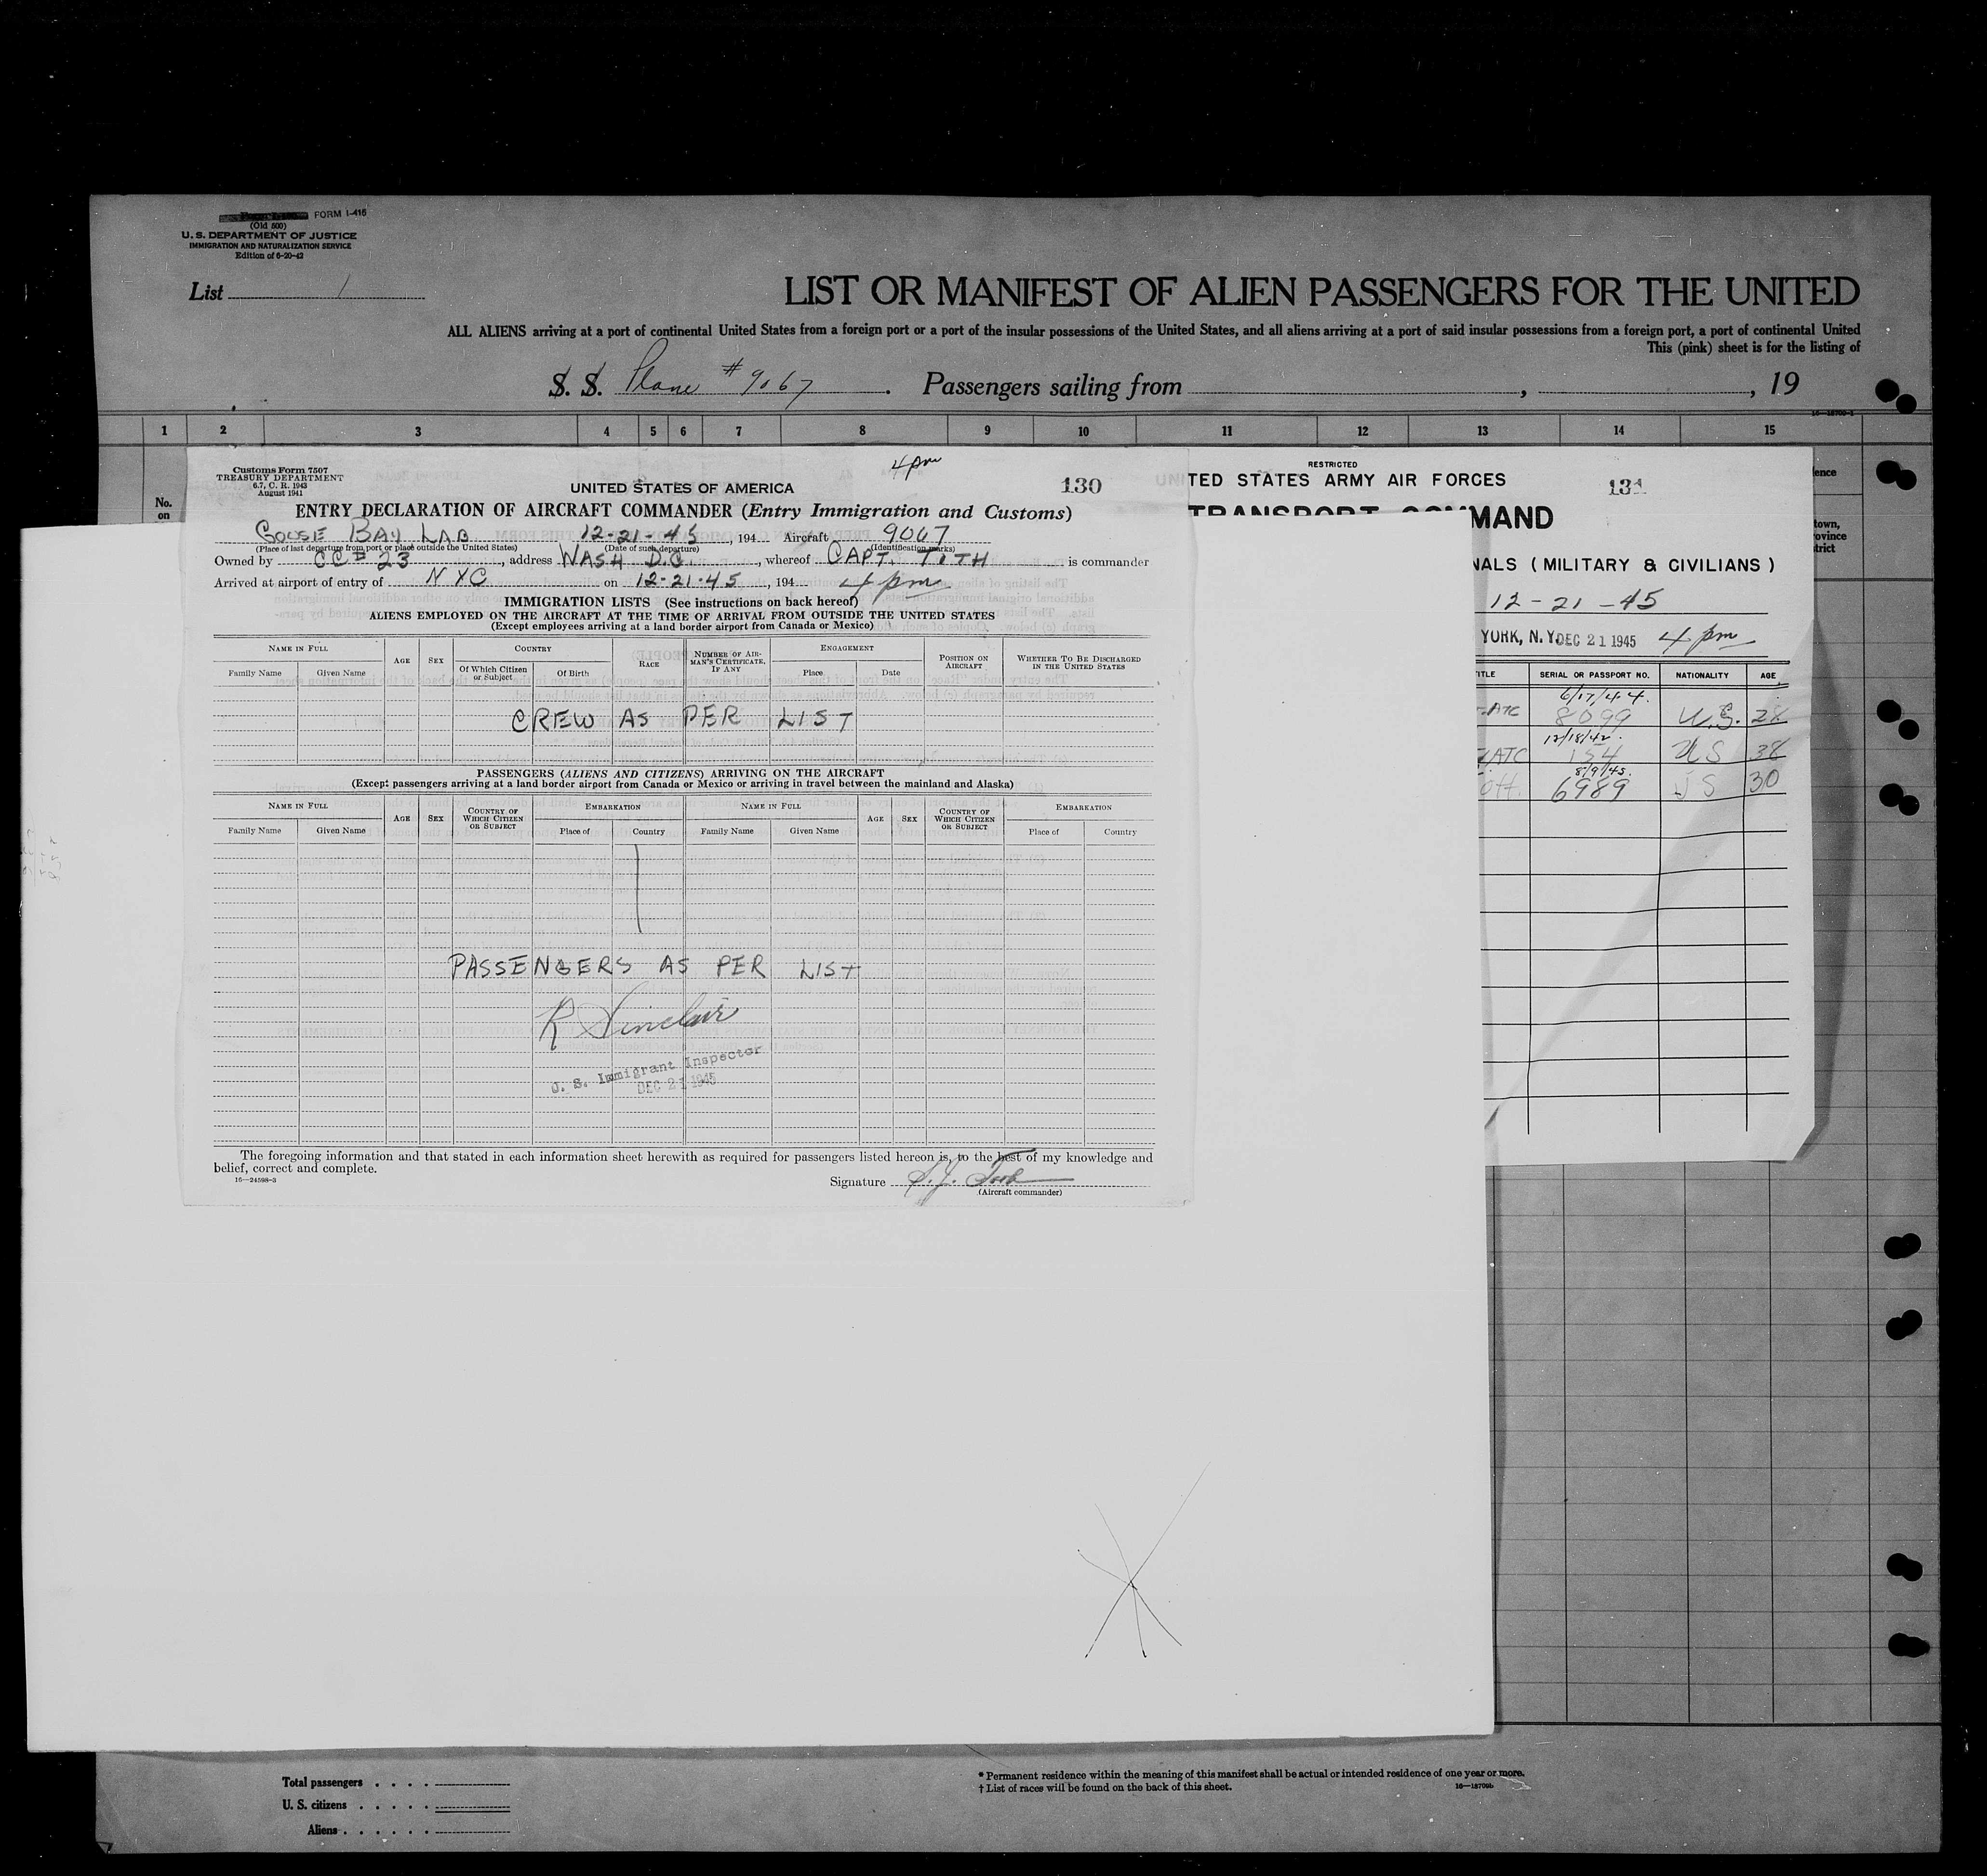 FORM I-416
(Old 500)
U. S. DEPARTMENT OF JUSTICE
IMMIGRATION AND NATURALIZATION SERVICE
Edition of 6-20-42
List 1
LIST OR MANIFEST OF ALIEN PASSENGERS FOR THE UNITED
ALL ALIENS arriving at a port of continental United States from a foreign port or a port of the insular possessions of the United States, and all aliens arriving at a port of said insular possessions from a foreign port, a port of continental United
This (pink) sheet is for the listing of
S. S. Plane #9067. Passengers sailing from , , 19
1 2 3 4 5 6 7 8 9 10 11 12 13 14 15
No.
on
Customs Form 7507
TREASURY DEPARTMENT
6.7, C. R. 1943
August 1941
4 pm
UNITED STATES OF AMERICA
130
ENTRY DECLARATION OF AIRCRAFT COMMANDER (Entry Immigration and Customs)
GOOSE BAY LAB 12-21-45, 194 Aircraft 9067
(Place of last departure from port or place outside the United States) (Date of such departure) (Identification marks)
Owned by CC# 23, address WASH D.C., whereof CAPT. TITH is commander
Arrived at airport of entry of NYC on 12-21-45, 194 4 pm
IMMIGRATION LISTS (See instructions on back hereof)
ALIENS EMPLOYED ON THE AIRCRAFT AT THE TIME OF ARRIVAL FROM OUTSIDE THE UNITED STATES
(Except employees arriving at a land border airport from Canada or Mexico)
NAME IN FULL AGE SEX COUNTRY RACE NUMBER OF AIRMAN'S CERTIFICATE, IF ANY ENGAGEMENT POSITION ON AIRCRAFT WHETHER TO BE DISCHARGED IN THE UNITED STATES
Family Name Given Name Of Which Citizen or Subject Of Birth Place Date
CREW AS PER LIST
PASSENGERS (ALIENS AND CITIZENS) ARRIVING ON THE AIRCRAFT
(Except passengers arriving at a land border airport from Canada or Mexico or arriving in travel between the mainland and Alaska)
NAME IN FULL AGE SEX COUNTRY OF WHICH CITIZEN OR SUBJECT EMBARKATION NAME IN FULL AGE SEX COUNTRY OF WHICH CITIZEN OR SUBJECT EMBARKATION
Family Name Given Name Place of Country Family Name Given Name Place of Country
PASSENGERS AS PER LIST
R Sinclair
U. S. Immigrant Inspector
DEC 21 1945
The foregoing information and that stated in each information sheet herewith as required for passengers listed hereon is, to the best of my knowledge and
belief, correct and complete.
16—24598-3
Signature
(Aircraft commander)
RESTRICTED
UNITED STATES ARMY AIR FORCES
131
TRANSPORT COMMAND
NALS (MILITARY & CIVILIANS)
12-21-45
YORK, N.Y. DEC 21 1945 4 pm
TITLE SERIAL OR PASSPORT NO. NATIONALITY AGE
6/17/44.
ATC 8099 U.S. 28
12/18/42.
ATC 154 US 38
8/9/45.
6989 US 30
ence
town,
ovince
trict
Total passengers
U. S. citizens
Aliens
* Permanent residence within the meaning of this manifest shall be actual or intended residence of one year or more.
† List of races will be found on the back of this sheet.